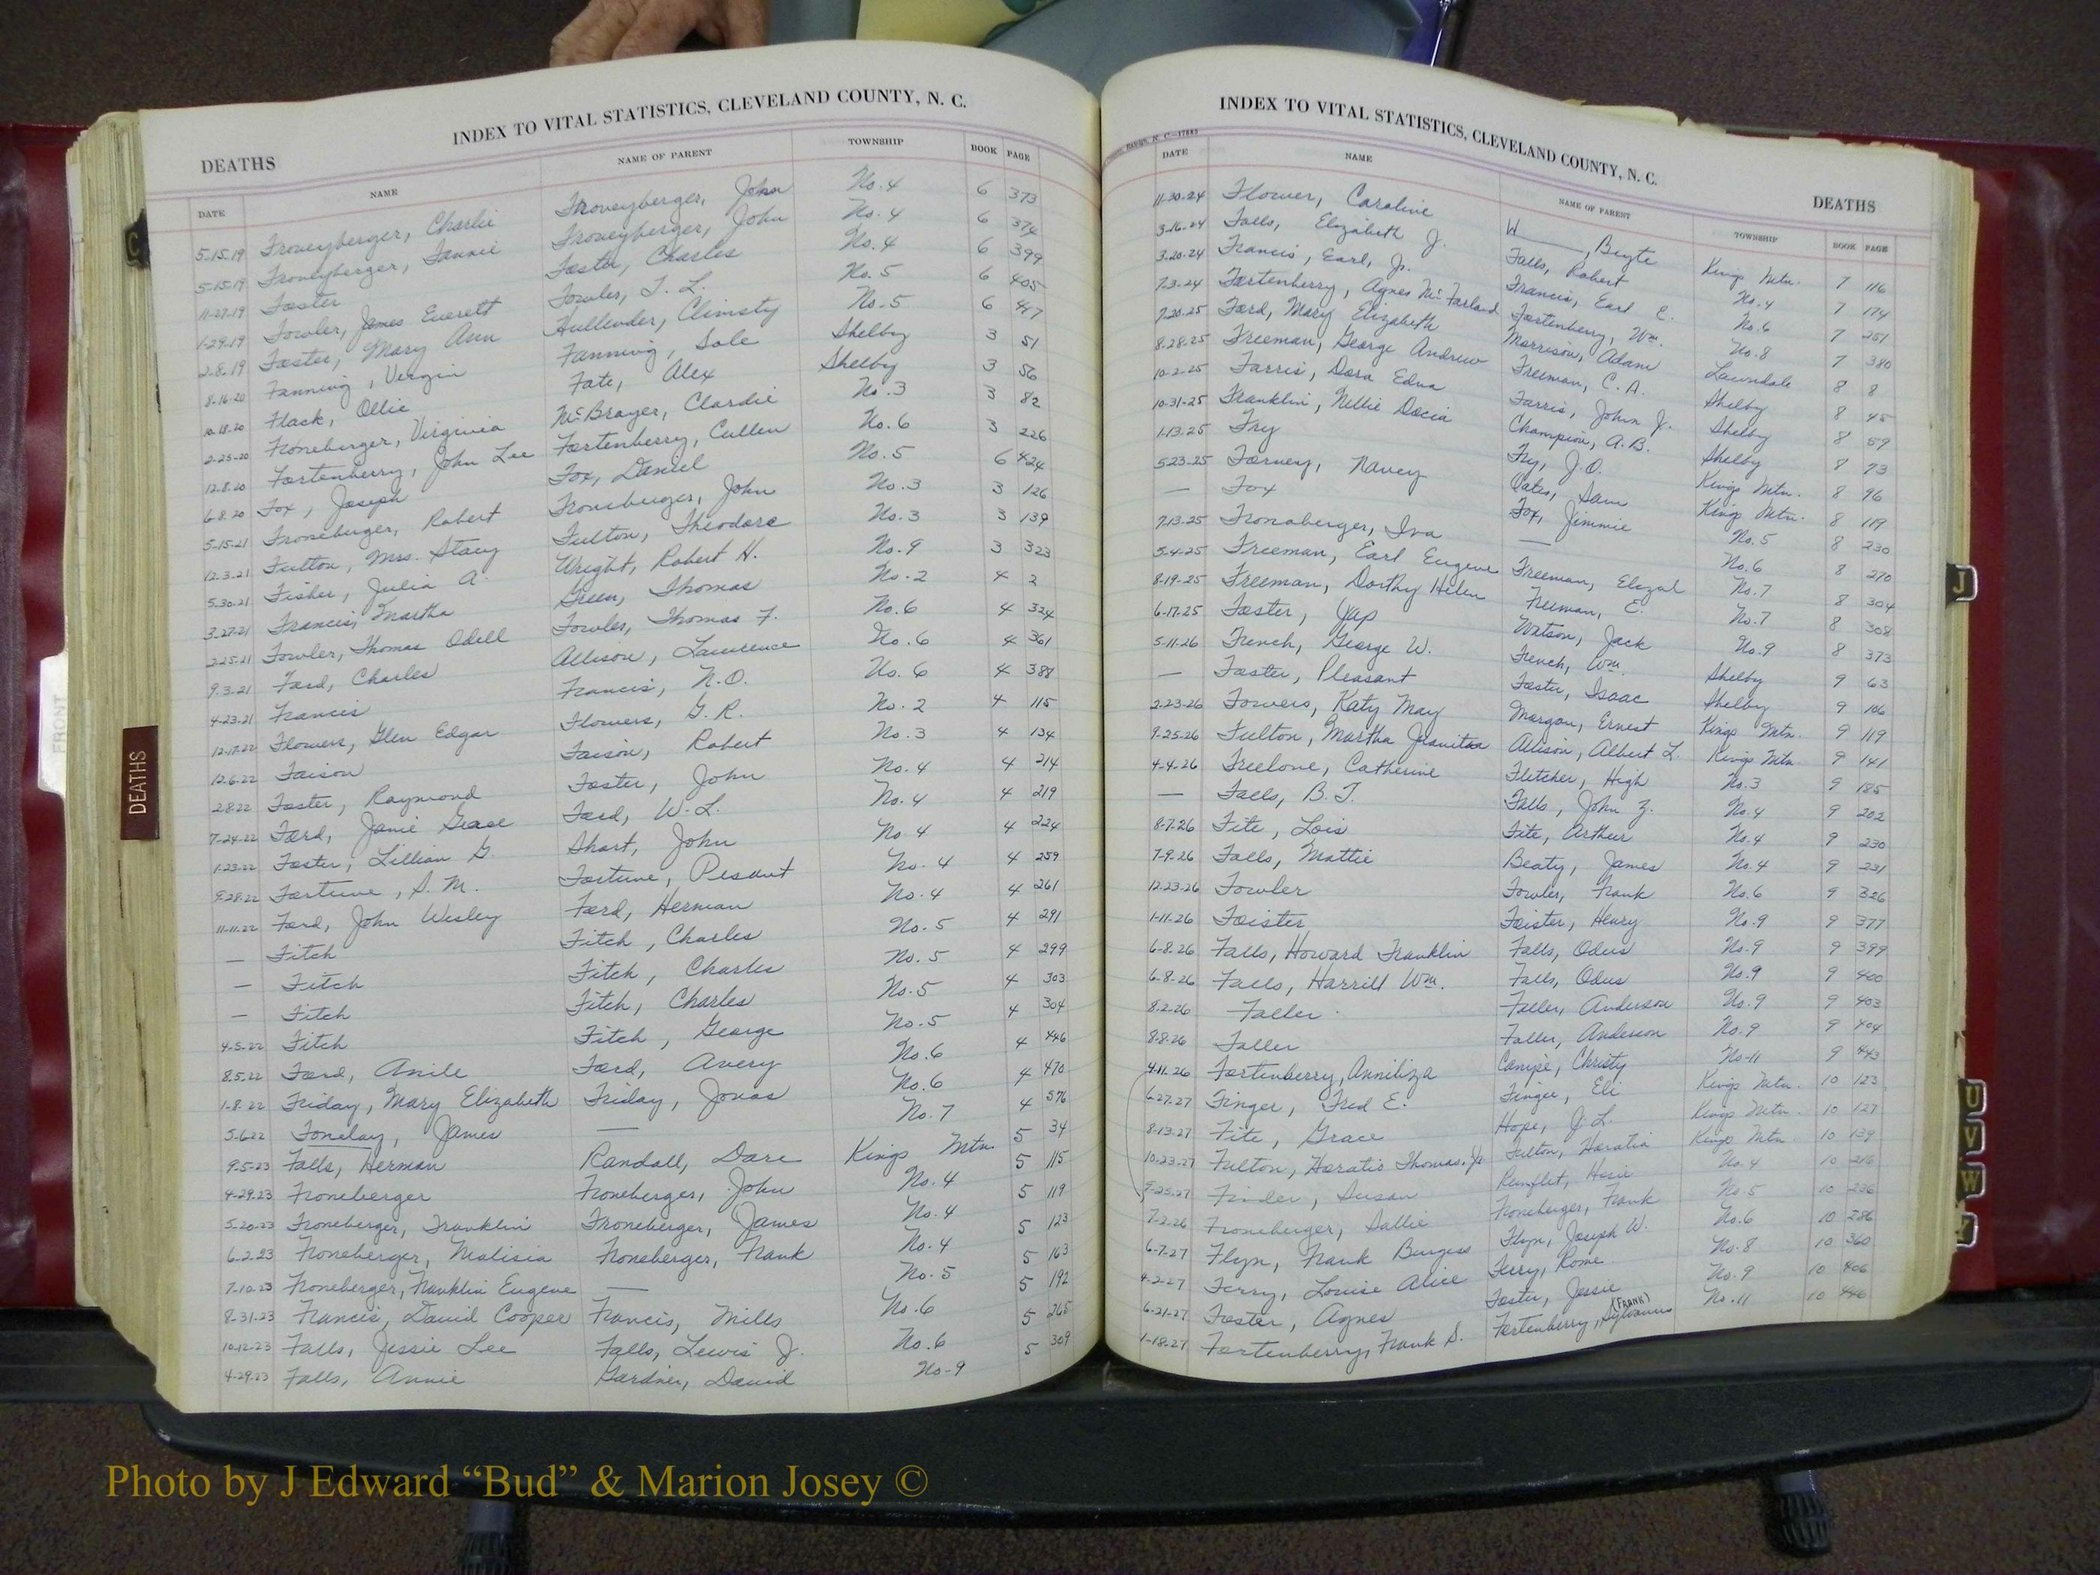 INDEX TO VITAL STATISTICS, CLEVELAND COUNTY, N. C.
DEATHS
DATE NAME NAME OF PARENT TOWNSHIP BOOK PAGE
5-15-19 Froneyberger, Charlie Froneyberger, John No. 4 6 373
5-15-19 Froneyberger, Fannie Froneyberger, John No. 4 6 374
11-27-19 Foster Foster, Charles No. 4 6 399
1-29-19 Fowler, James Everett Fowler, T. L. No. 5 6 405
2-8-19 Foster, Mary Ann Hullender, Climsty No. 5 6 417
8-16-20 Fanning, Vergin Fanning, Sole Shelby 3 51
10-18-20 Flack, Ollie Fate, Alex Shelby 3 56
2-25-20 Froneberger, Virginia McBrayer, Clardie No. 3 3 82
12-8-20 Fortenberry, John Lee Fortenberry, Cullen No. 6 3 226
6-8-20 Fox, Joseph Fox, Daniel No. 5 6 424
5-15-21 Froneberger, Robert Froneberger, John No. 3 3 126
12-3-21 Fulton, Mrs. Stacy Fulton, Theodore No. 3 3 139
5-30-21 Fisher, Julia A. Wright, Robert H. No. 9 3 323
3-27-21 Francis, Martha Green, Thomas No. 2 4 2
2-25-21 Fowler, Thomas Odell Fowler, Thomas F. No. 6 4 324
9-3-21 Ford, Charles Allison, Lawrence No. 6 4 361
4-23-21 Francis Francis, N.O. No. 6 4 388
12-17-22 Flowers, Glen Edgar Flowers, G. R. No. 2 4 115
12-6-22 Faison Faison, Robert No. 3 4 134
2-8-22 Foster, Raymond Foster, John No. 4 4 214
7-24-22 Ford, Janie Grace Ford, W. L. No. 4 4 219
1-23-22 Foster, Lillian G. Short, John No 4 4 224
9-28-22 Fortune, S. M. Fortune, Pesant No. 4 4 259
11-11-22 Ford, John Wesley Ford, Herman No. 4 4 261
— Fitch Fitch, Charles No. 5 4 291
— Fitch Fitch, Charles No. 5 4 299
— Fitch Fitch, Charles No. 5 4 303
4-5-22 Fitch Fitch, George No. 5 4 304
8-5-22 Ford, Anile Ford, Avery No. 6 4 446
1-8-22 Friday, Mary Elizabeth Friday, Jonas No. 6 4 470
5-6-22 Fonelay, James — No. 7 4 576
9-5-23 Falls, Herman Randall, Dare Kings Mtn. 5 34
4-29-23 Froneberger Froneberger, John No. 4 5 115
5-20-23 Froneberger, Franklin Froneberger, James No. 4 5 119
6-2-23 Froneberger, Malisia Froneberger, Frank No. 4 5 123
7-10-23 Froneberger, Franklin Eugene — No. 5 5 163
8-31-23 Francis, David Cooper Francis, Mills No. 6 5 192
10-12-23 Falls, Jessie Lee Falls, Lewis J. No. 6 5 265
4-29-23 Falls, Annie Gardner, David No-9 5 309
INDEX TO VITAL STATISTICS, CLEVELAND COUNTY, N. C.
DEATHS
N. C.—17885
DATE NAME NAME OF PARENT TOWNSHIP BOOK PAGE
11-30-24 Flower, Caroline W____, Beyte Kings Mtn. 7 116
3-16-24 Falls, Elizabeth J. Falls, Robert No. 4 7 174
3-20-24 Francis, Earl, Jr. Francis, Earl C. No. 6 7 251
7-3-24 Fortenberry, Agnes McFarland Fortenberry, Wm. No. 8 7 380
7-20-25 Ford, Mary Elizabeth Morrison, Adam Lawndale 8 8
8-28-25 Freeman, George Andrew Freeman, C. A. Shelby 8 45
10-2-25 Farris, Dora Edna Farris, John J. Shelby 8 59
10-31-25 Franklin, Nellie Docia Champion, A.B. Shelby 8 73
1-13-25 Fry Fry, J.O. Kings Mtn. 8 96
5-23-25 Forney, Nancy Oates, Sam Kings Mtn. 8 119
— Fox Fox, Jimmie No. 5 8 230
7-13-25 Fronaberger, Iva — No. 6 8 270
5-4-25 Freeman, Earl Eugene Freeman, Elizal No. 7 8 304
8-19-25 Freeman, Dorthy Helen Freeman, E. No. 7 8 308
6-17-25 Foster, Yap Watson, Jack No. 9 8 373
5-11-26 French, George W. French, Wm. Shelby 9 63
— Foster, Pleasant Foster, Isaac Shelby 9 106
2-23-26 Fowers, Katy May Morgan, Ernest Kings Mtn. 9 119
9-25-26 Fulton, Martha Juanitaa Alison, Albert L. Kings Mtn. 9 141
4-4-26 Freelove, Catherine Fletcher, High No. 3 9 185
— Falls, B. T. Falls, John Z. No. 4 9 202
8-7-26 Fite, Lois Fite, Arthur No. 4 9 230
7-9-26 Falls, Mattie Beaty, James No. 4 9 231
12-23-26 Fowler Fowler, Frank No. 6 9 326
1-11-26 Foister Foister, Henry No. 9 9 377
6-8-26 Falls, Howard Franklin Falls, Odus No. 9 9 399
6-8-26 Falls, Harrill Wm. Falls, Odus No. 9 9 400
8-2-26 Faller Faller, Anderson No. 9 9 403
8-8-26 Faller Faller, Anderson No. 9 9 404
4-11-26 Fortenberry, Anniliza Canipe, Christy No-11 9 443
6-27-27 Finger, Fred E. Finger, Eli Kings Mtn. 10 123
8-13-27 Fite, Grace Hope, J. L. Kings Mtn. 10 127
10-23-27 Fulton, Horatio Thomas, Jr. Fulton, Horatia Kings Mtn. 10 139
9-25-27 Finder, Susan No. 4 10 216
7-2-26 Froneberger, Sallie Froneberger, Frank No 5 10 236
6-7-27 Flyn, Frank Burgess Flyn, Joseph W. No. 6 10 286
4-2-27 Ferry, Louise Alice Ferry, Rome No. 8 10 360
6-21-27 Foster, Agnes Foster, Jessie No. 9 10 406
1-18-27 Fortenberry, Frank S. Fortenberry, Sylvanus (FRANK) No. 11 10 446
C
FRONT
DEATHS
J
U
V
W
Photo by J Edward “Bud” & Marion Josey ©